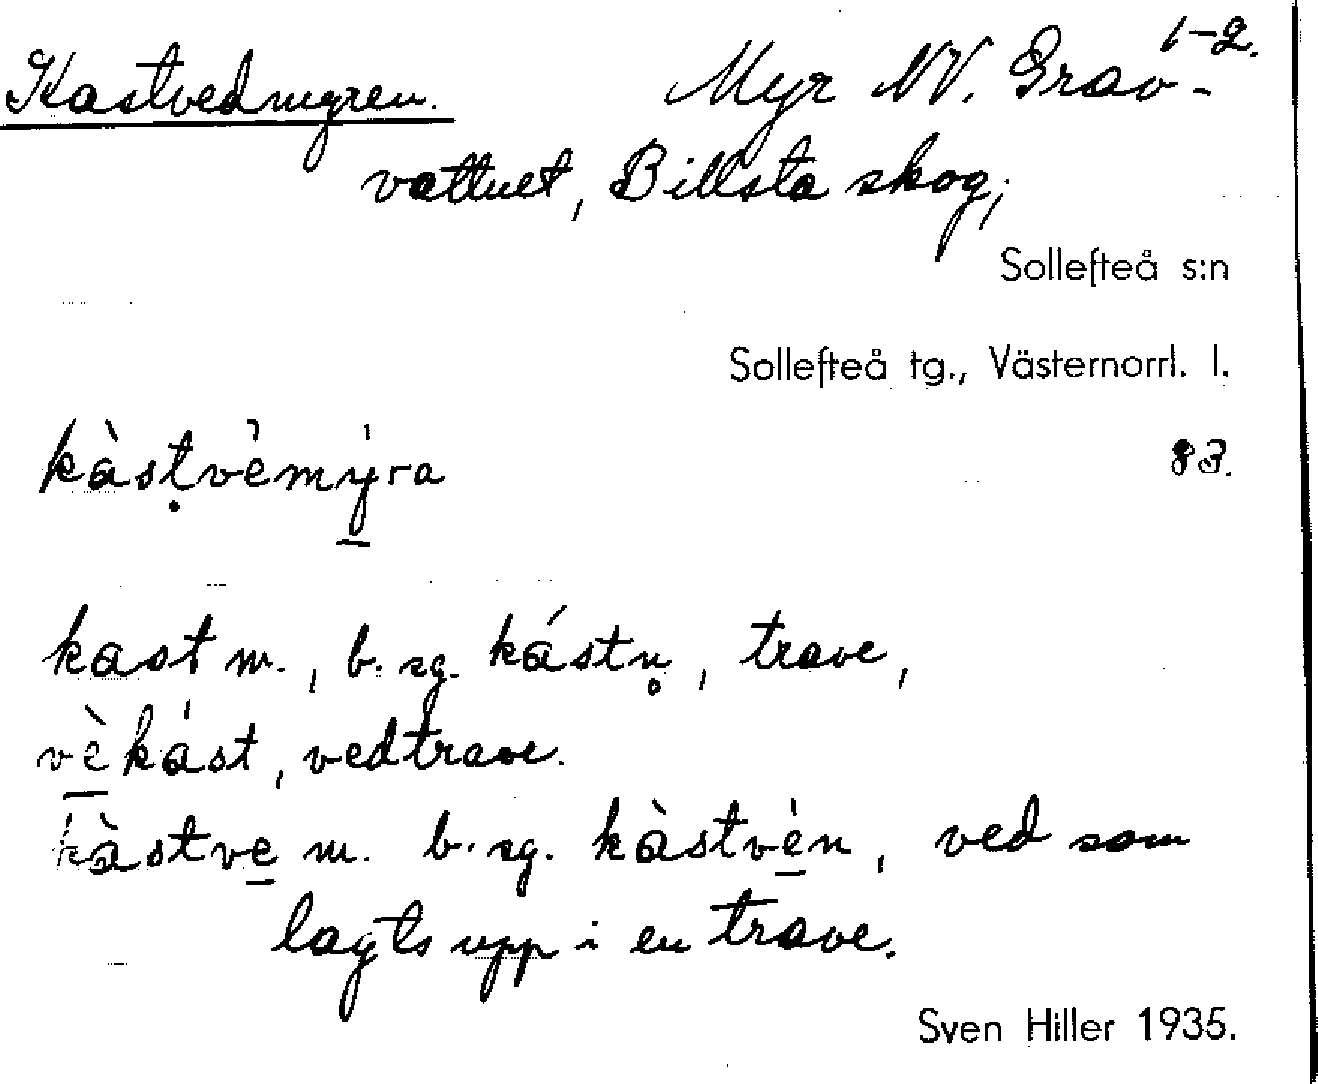 1-2.
Kastvedmyren. Myr NV. Grav-
vattnet, Billsta skog,
Sollefteå s:n
Sollefteå tg., Västernorrl. l.
kàstvèmýra 83.
kast m., b. sg. kástn̥, trave,
vèkást, vedtrave.
kàstve m. b. sg. kàstvèn, ved som
lagts upp i en trave.
Sven Hiller 1935.